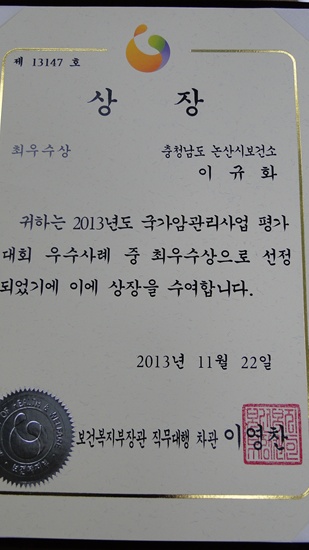 제 13147 호
상 장
최우수상
충청남도 논산시보건소
이 규 화
귀하는 2013년도 국가암관리사업 평가
대회 우수사례 중 최우수상으로 선정
되었기에 이에 상장을 수여합니다.
2013년 11월 22일
보건복지부장관 직무대행 차관 이영찬